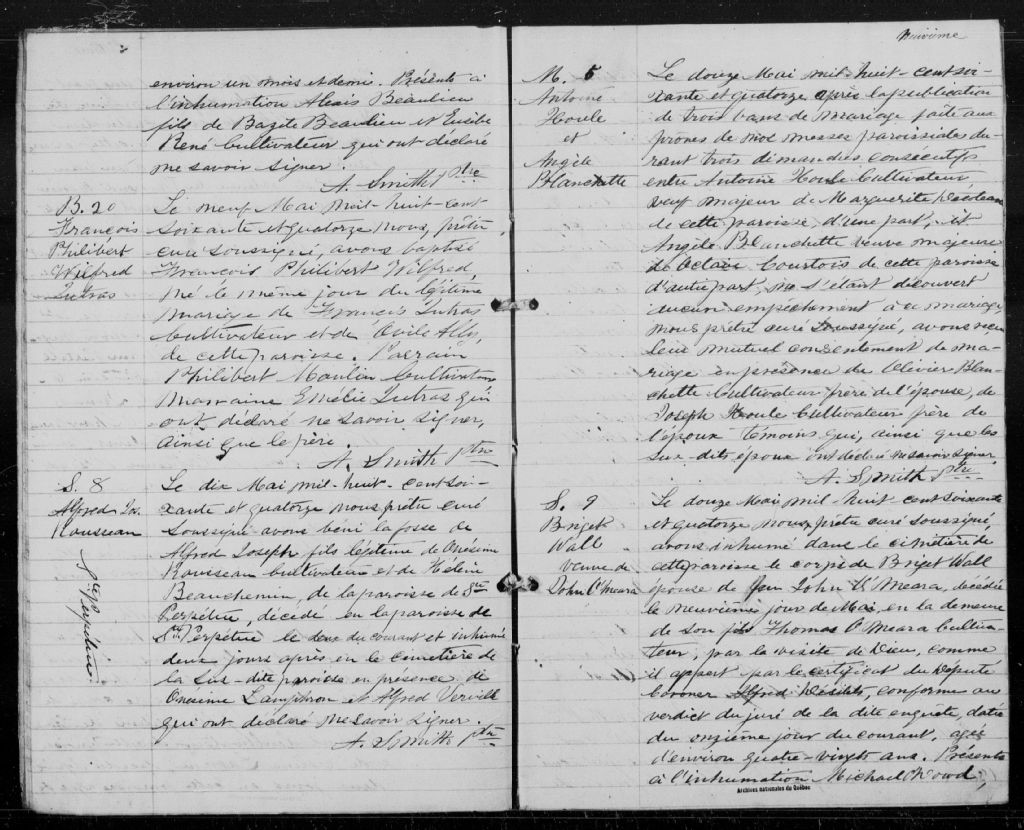 environ un mois et demi. Présents à
l'inhumation Alexis Beaulieu
fils de Bazite Beaulieu et Eusèbe
René Cultivateur qui ont déclaré
ne savoir signer.
A. Smith Ptre
B. 20
François
Philibert
Wilfred
Lutras
Le neuf Mai mil-huit-cent
soixante et quatorze nous, prêtre
curé soussigné, avons baptisé
François Philibert Wilfred,
né le même jour du légitime
mariage de Francis Lutras
Cultivateur et de Exile Ally,
de cette paroisse. Parrain
Philibert Moulin Cultivateur
Marraine Emélie Lutras qui
ont déclaré ne savoir signer,
ainsi que le père.
A. Smith Ptre
S. 8
Alfred Jos.
Rousseau
Ste Perpétue.
Le dix Mai mil-huit-cent soi-
xante et quatorze nous prêtre curé
soussigné avons béni la fosse de
Alfred Joseph, fils légitime de Onésime
Rousseau Cultivateur et de Hélène
Beauchemin, de la paroisse de Ste
Perpétue, décédé en la paroisse de
Ste Perpétue le deux du courant et inhumé
deux jours après en le cimetière de
la sus-dite paroisse en présence de
Onésime Lamphron et Alfred Verville
qui ont déclaré ne savoir signer.
A. Smith Ptre
neuvième
M. 5
Antoine
Houle
et
Angèle
Blanchette
Le douze Mai mil-huit-cent soi-
xante et quatorze après la publication
de trois bans de mariage faite aux
prônes de nos messes paroissiales du-
rant trois dimanches consécutifs
entre Antoine Houle Cultivateur
veuf majeur de Marguerite
de cette paroisse, d'une part, et
Angèle Blanchette veuve majeure
de Octave Courtois de cette paroisse
d'autre part, ne s'étant découvert
aucun empêchement à ce mariage
nous prêtre curé soussigné, avons reçu
leur mutuel consentement de ma-
riage en présence de Olivier Blan-
chette Cultivateur frère de l'épouse, de
Joseph Houle Cultivateur frère de
l'époux témoins qui, ainsi que les
sus-dits époux ont déclaré ne savoir signer
A. Smith Ptre
S. 9
Briget
Wall
veuve de
John O'Meara
Le douze Mai mil-huit cent soixante
et quatorze nous prêtre curé soussigné,
avons inhumé dans le cimetière de
cette paroisse le corps de Briget Wall
épouse de feu John O'Meara, décédée
le neuvième jour de Mai, en la demeure
de son fils Thomas O'Meara Cultiva-
teur, par la visite de Dieu, comme
il appert par le certificat du Député
Coroner Alfred Désilets, conforme au
verdict du juré de la dite enquête, datée
du onzième jour du courant, âgée
d'environ quatre-vingts ans. Présents
à l'inhumation Michael Dowd,
Archives nationales du Québec